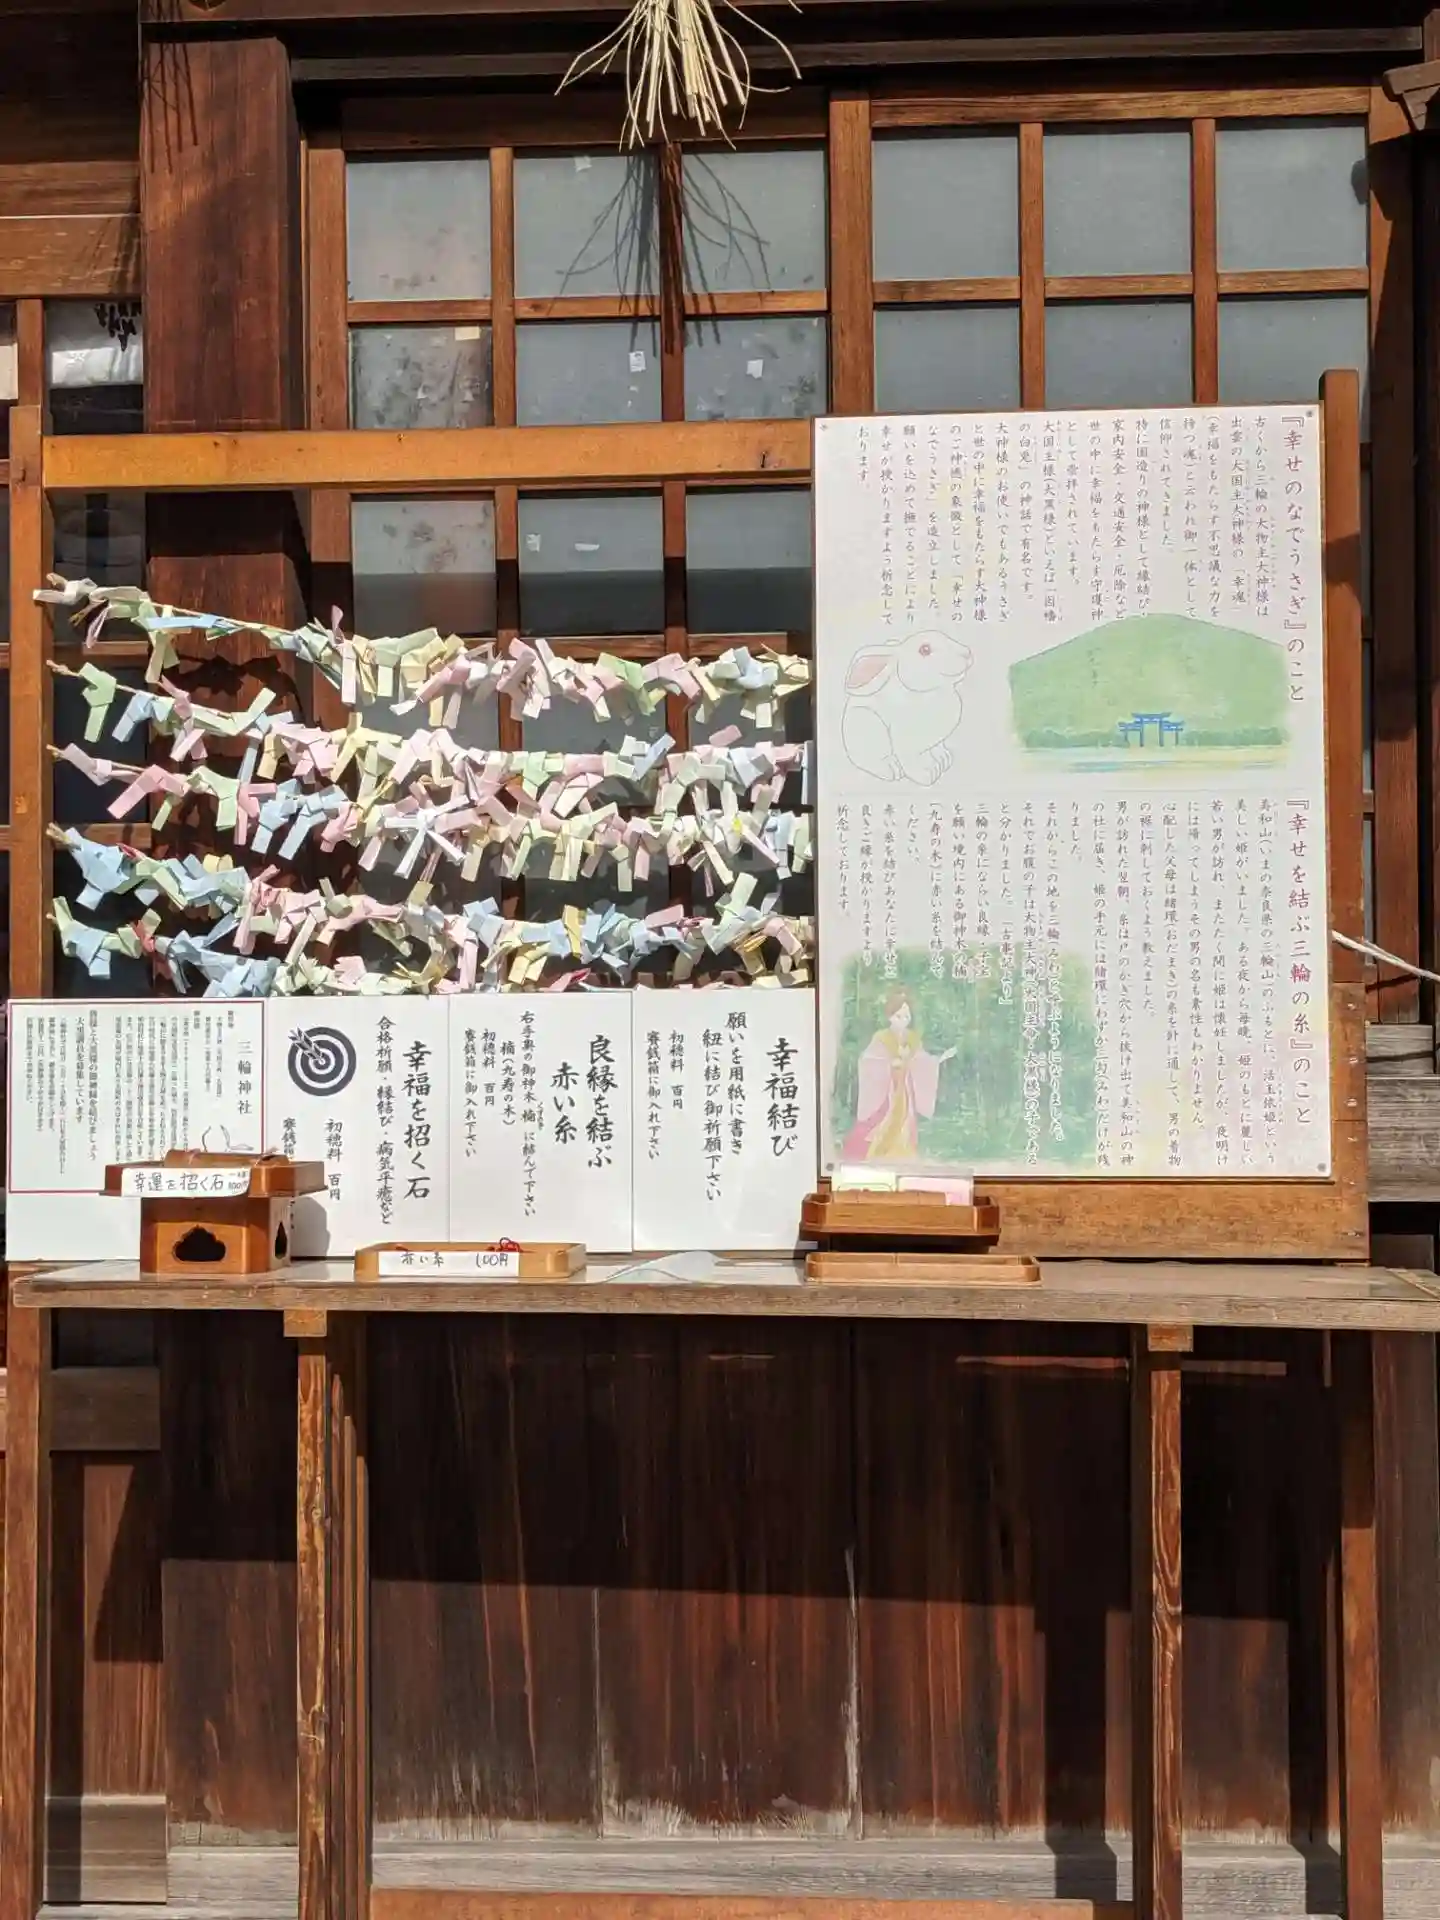 『幸せのなでうさぎ』のこと
古くから三輪の大物主大神様は
出雲の大国主大神様の「幸魂
(幸福をもたらす不思議な力を
持つ魂)と云われ御一体として
信仰されてきました。
特に国造りの神様として縁結び・
家内安全・交通安全・厄除など
世の中に幸福をもたらす守護神
として崇拝されています。
大国主様(大黒様)といえば「因幡
の白兎」の神話で有名です。
大神様のお使いでもあるうさぎ
と世の中に幸福をもたらす大神様
のご神徳の象徴として「幸せの
なでうさぎ」を造立しました。
願いを込めて撫でることにより
幸せが授かりますよう祈念して
おります。
『幸せを結ぶ三輪の糸』のこと
美和山(いまの奈良県の三輪山)のふもとに、活玉依姫という
美しい姫がいました。ある夜から毎晩、姫のもとに麗しい
若い男が訪れ、またたく間に姫は懐妊しましたが、夜明け
には帰ってしまうその男の名も素性もわかりません。
心配した父母は緒環(おだまき)の糸を針に通して、男の着物
の裾に刺しておくよう教えました。
男が訪れた翌朝、糸は戸のかぎ穴から抜け出て美和山の神
の社に届き、姫の手元には緒環にわずか三勾(みわ)だけが残
りました。
それからこの地を三輪(みわ)と呼ぶようになりました。
それでお腹の子は大物主大神(大国主命・大黒様)の子である
と分かりました。「古事記より」
三輪の糸にならい良縁・子宝
を願い境内にある御神木の楠
(九寿の木)に赤い糸を結んで
ください。
赤い糸を結びあなたに幸せと
良きご縁が授かりますよう
祈念しております。
幸福結び
願いを用紙に書き
紐に結び御祈願下さい
初穂料 百円
賽銭箱に御入れ下さい
良縁を結ぶ
赤い糸
右手奥の御神木 楠 に結んで下さい
楠(九寿の木)
初穂料 百円
賽銭箱に御入れ下さい
幸福を招く石
合格祈願・縁結び・病気平癒など
初穂料 百円
賽銭箱
三輪神社
皆様と大黒様の御神縁を結びましょう
大黒講員を募集しています
幸運を招く石 一ヶ 100円
赤い糸 100円